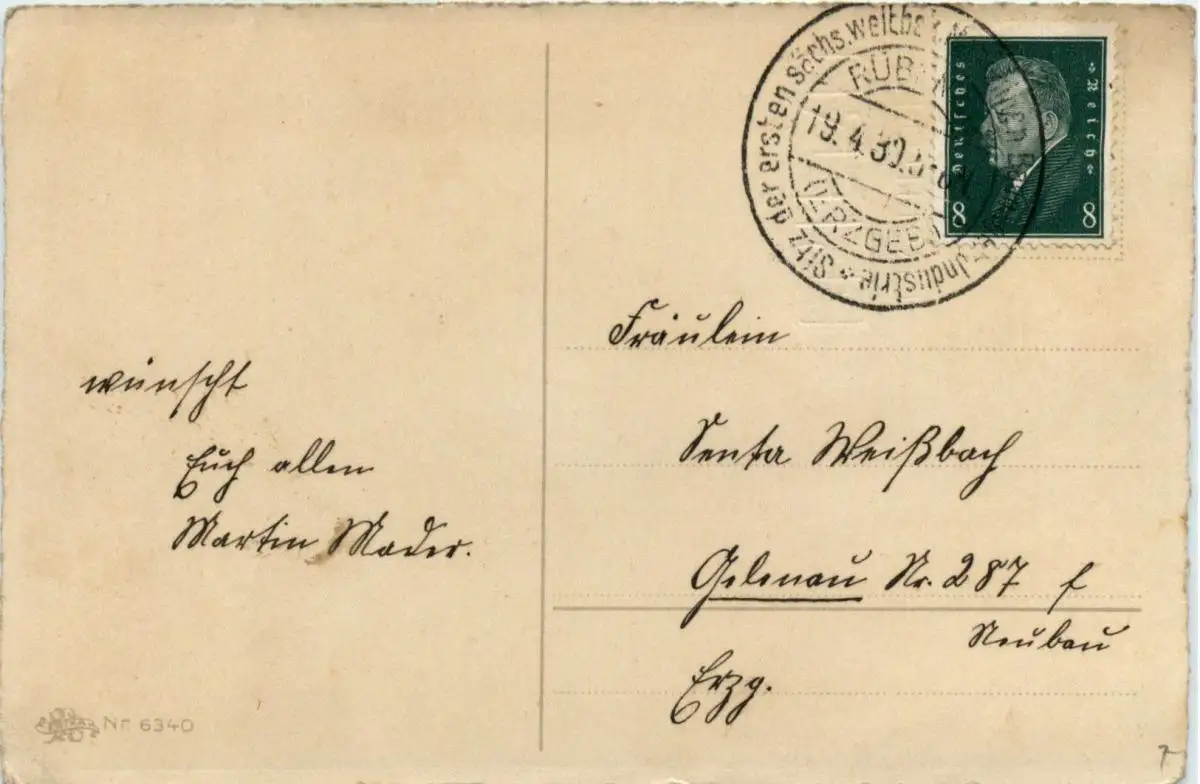 wünscht
Euch allen
Martin Mader.
Nr 6340
Sitz der ersten sächs. weltbek. Industrie
RÜB
19.4.30.
(ERZGEB.)
Deutsches Reich
8 8
Fräulein
Senta Weißbach
Gelenau Nr. 287 f
Neubau
Erzg.
7